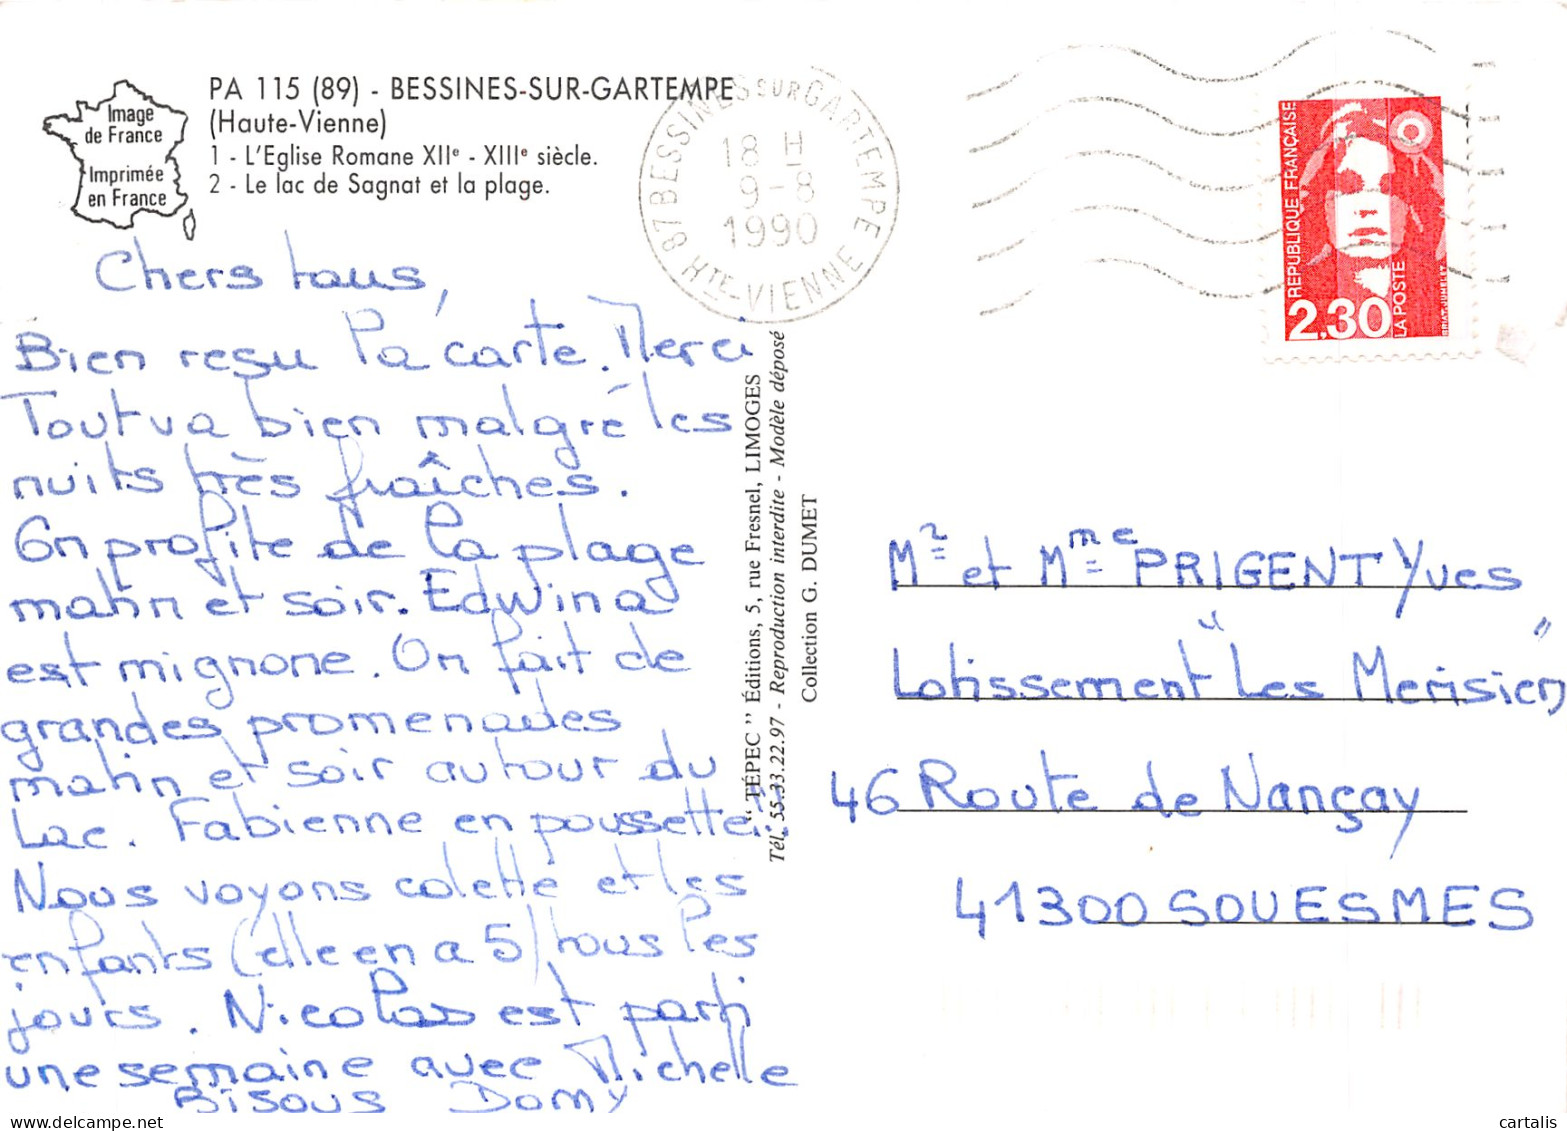 Image
de France
Imprimée
en France
PA 115 (89) - BESSINES-SUR-GARTEMPE
(Haute-Vienne)
1 - L'Eglise Romane XIIe - XIIIe siècle.
2 - Le lac de Sagnat et la plage.
87 BESSINES SUR GARTEMPE
18 H
9-8
1990
HTE-VIENNE
REPUBLIQUE FRANÇAISE
2,30
LA POSTE
BRIAT. JUMELET
Chers tous,
Bien resu la carte. Merci
Tout va bien malgré les
nuits très fraîches.
On profite de la plage
matin et soir. Edwina
est mignone. On fait de
grandes promenades
matin et soir autour du
Lac. Fabienne en poussette!!
Nous voyons colette et les
enfants (elle en a 5) tous les
jours. Nicolas est parti
une semaine avec Michelle
Bisous Domy
" TÉPEC " Éditions, 5, rue Fresnel, LIMOGES
Tél. 55.33.22.97 - Reproduction interdite - Modèle déposé
Collection G. DUMET
Mr et Mme PRIGENT Yves
Lotissement "Les Merisiers"
46 Route de Nançay
41300 SOUESMES
cartalis